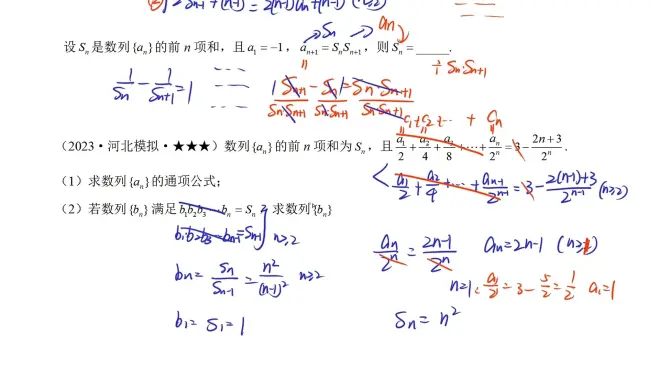 ② 2S_{n-1}+(n-1)=2(n-1)a_n+(n-1) (n≥2)
→S_n →a_n
设 S_n 是数列{a_n}的前 n 项和，且 a_1 = -1，a_{n+1} = S_nS_{n+1}，则 S_n = _____.
1/S_n - 1/S_{n+1} = 1
S_{n+1}/S_nS_{n+1} - S_n/S_nS_{n+1} = S_n·S_{n+1}/S_nS_{n+1}
S_n·S_{n+1}
c_1+c_2+… + c_n
（2023·河北模拟·★★★）数列{a_n}的前 n 项和为 S_n，且 a_1/2 + a_2/4 + a_3/8 + ⋯ + a_n/2^n = 3 - (2n+3)/2^n.
（1）求数列{a_n}的通项公式；
a_1/2 + a_2/4 + ⋯ + a_{n-1}/2^{n-1} = 3 - (2(n-1)+3)/2^{n-1} (n≥2)
（2）若数列{b_n}满足 b_1b_2b_3⋯b_n = S_n，求数列{b_n}
b_1b_2b_3⋯b_{n-1} = S_{n-1} n≥2
a_n/2^n = (2n-1)/2^n a_n = 2n-1 (n≥1)
b_n = S_n/S_{n-1} = n²/(n-1)² n≥2
n=1, a_1/2 = 3 - 5/2 = 1/2 a_1=1
b_1 = S_1 = 1
S_n = n²